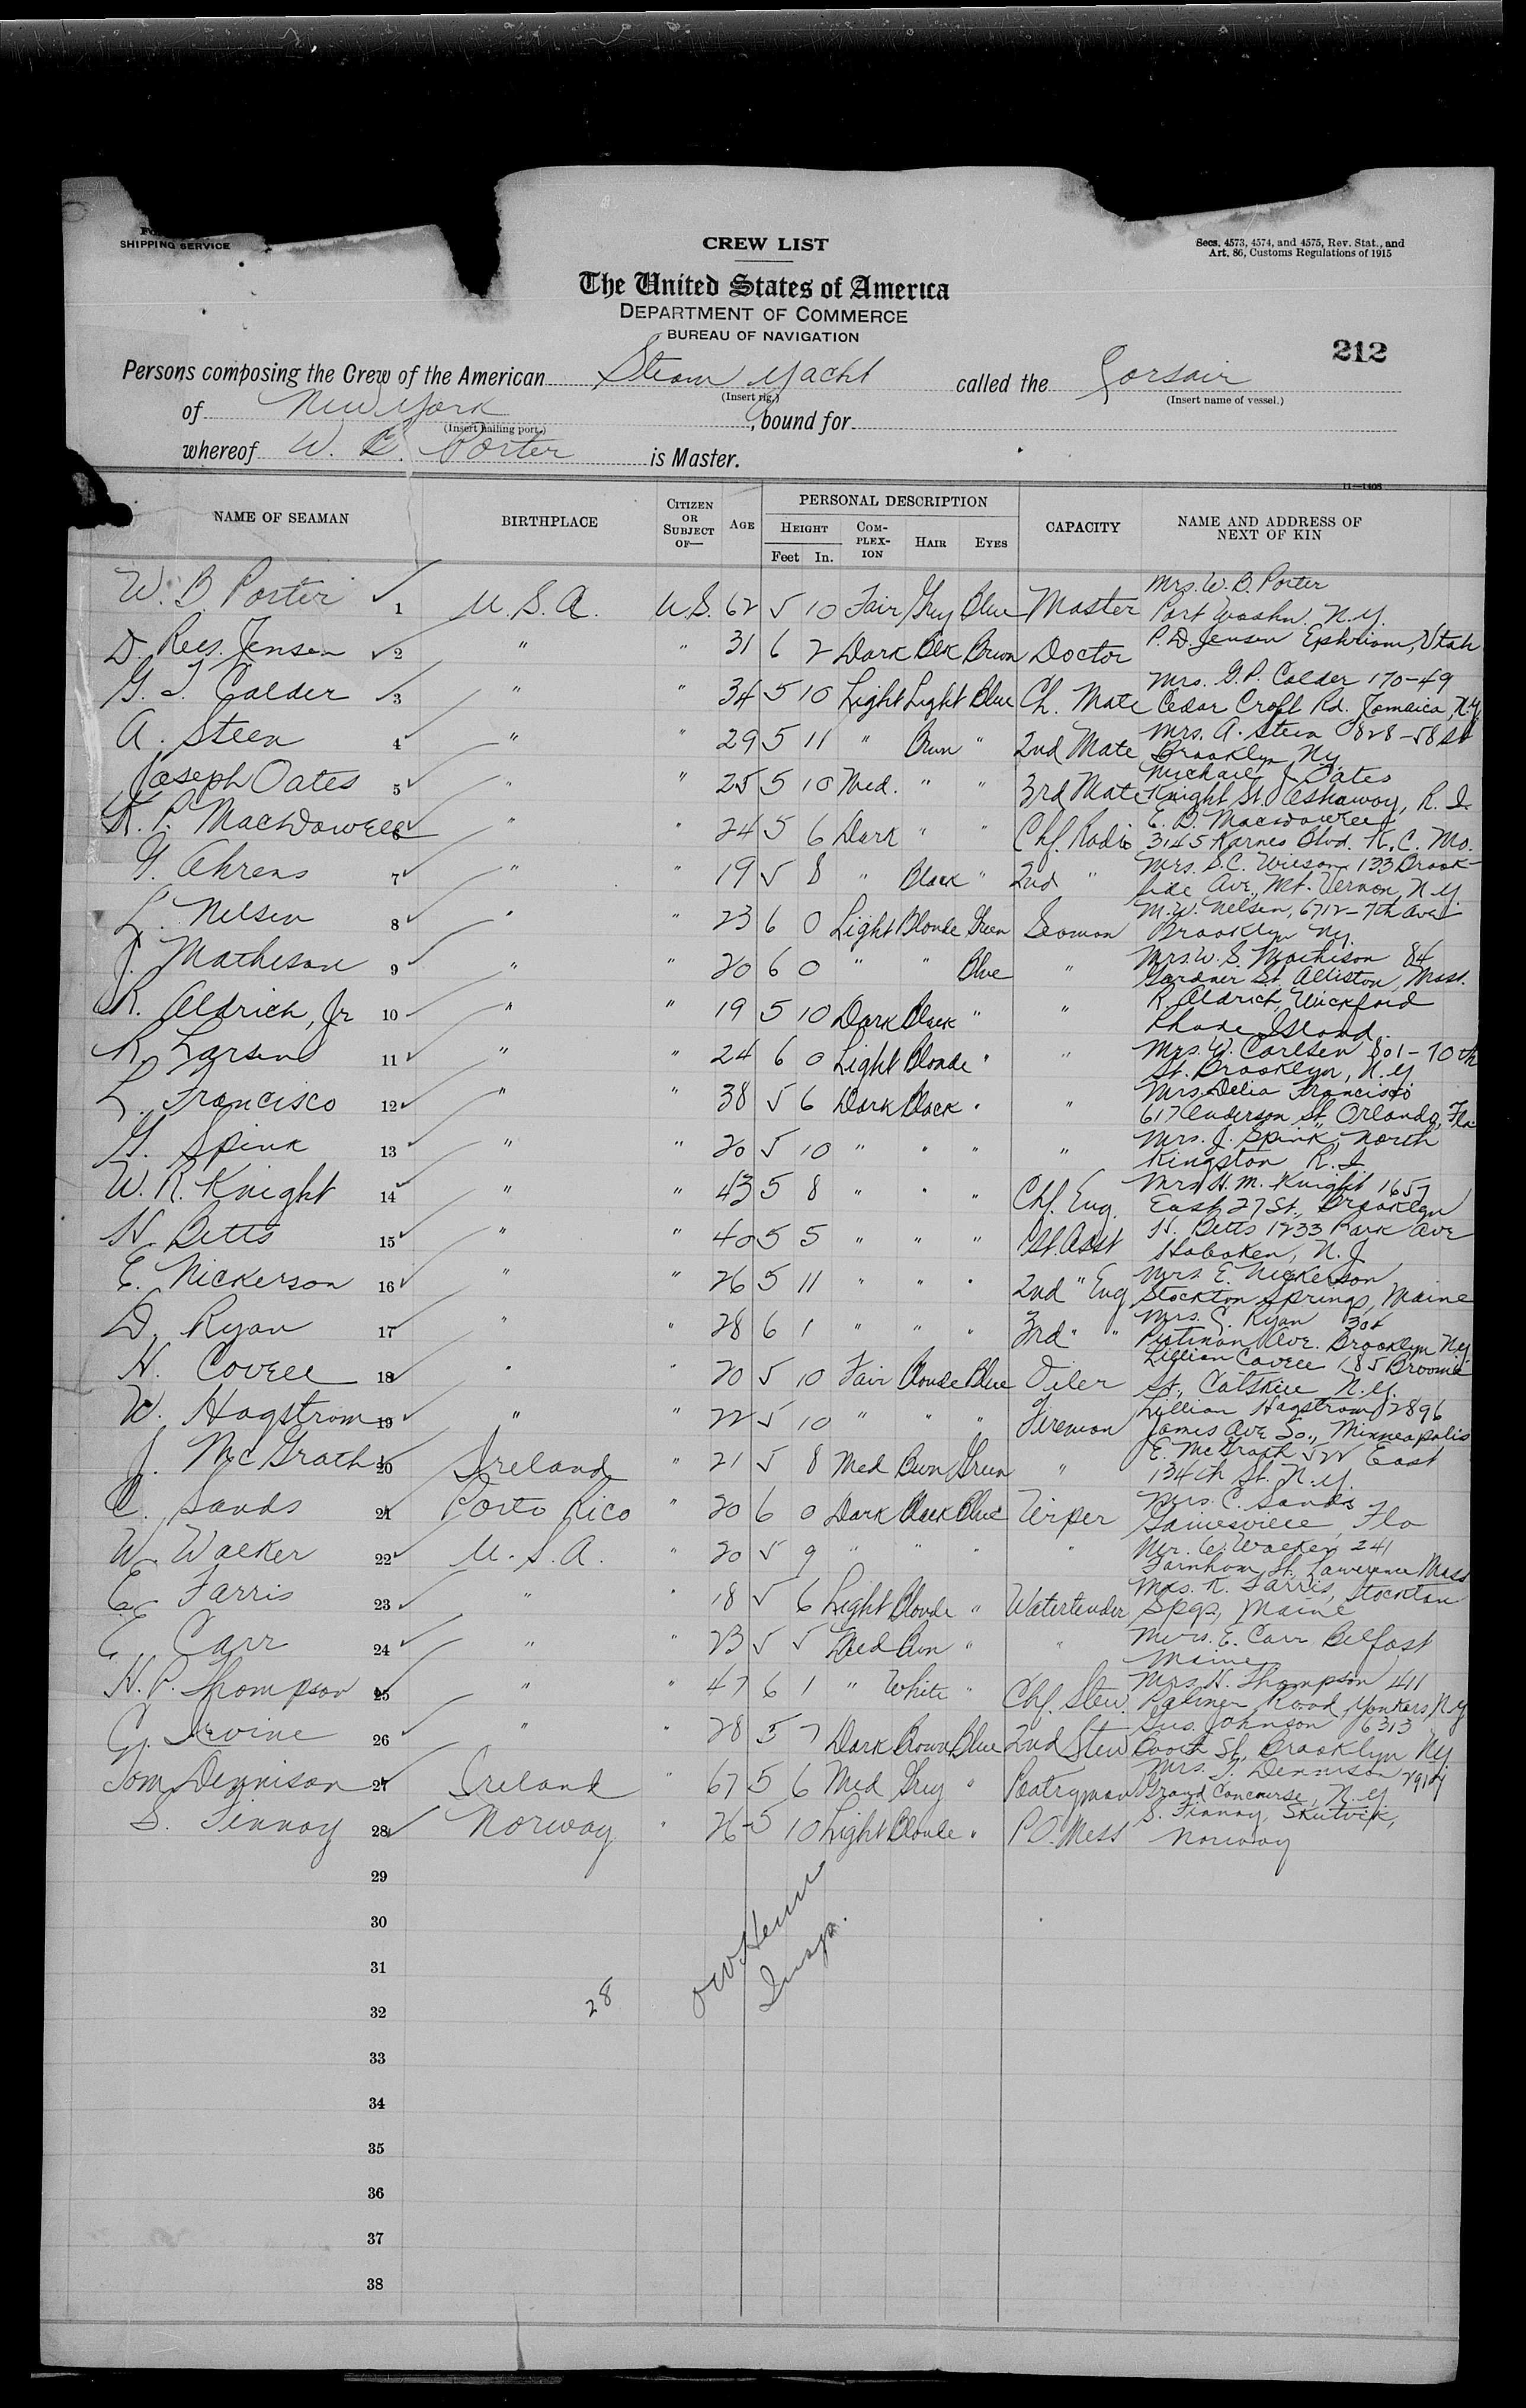 SHIPPING SERVICE
CREW LIST
Secs. 4573, 4574, and 4575, Rev. Stat., and
Art. 86, Customs Regulations of 1915
The United States of America
DEPARTMENT OF COMMERCE
BUREAU OF NAVIGATION
212
Persons composing the Crew of the American Steam Yacht called the Corsair
(Insert rig.) (Insert name of vessel.)
of New York, bound for
(Insert hailing port.)
whereof W. B. Porter is Master.
11—1408
NAME OF SEAMAN BIRTHPLACE CITIZEN OR SUBJECT OF— AGE PERSONAL DESCRIPTION CAPACITY NAME AND ADDRESS OF NEXT OF KIN
HEIGHT COMPLEXION HAIR EYES
Feet In.
Mrs. W. B. Porter
W. B. Porter 1 U.S.A. U.S. 62 5 10 Fair Grey Blue Master Port Washn. N.Y.
D. Rees Jensen 2 " " 31 6 2 Dark Blk Brwn Doctor P. D. Jensen Ephriam, Utah
Mrs. G. P. Calder 170-49
G. T. Calder 3 " " 34 5 10 Light Light Blue Ch. Mate Cedar Croft Rd. Jamaica, N.Y.
Mrs. A. Steen 828-58 St
A. Steen 4 " " 29 5 11 " Brwn " 2nd Mate Brooklyn Ny.
Michael J. Oates
Joseph Oates 5 " " 25 5 10 Med. " " 3rd Mate Knight St. Ashaway, R. I.
E. D. Macdowell
K. P. MacDowell 6 " " 24 5 6 Dark " " Chf. Radio 3145 Karnes Blvd. K. C. Mo.
Mrs. S. C. Wilson 133 Brook-
G. Ahrens 7 " " 19 5 8 " Black " 2nd " side Ave, Mt. Vernon, N.Y.
M. W. Nelsen, 6712-7th Ave
L. Nelsen 8 " " 23 6 0 Light Blonde Green Seaman Brooklyn Ny.
Mrs. W. S. Mathison 84
J. Matheson 9 " " 20 6 0 " " Blue " Gardner St. Allston, Mass.
R. Aldrich, Wickford
R. Aldrich, Jr 10 " " 19 5 10 Dark Black " " Rhode Island.
Mrs. W. Carlsen 801-70th
R. Larsen 11 " " 24 6 0 Light Blonde " " St. Brooklyn, N.Y
Mrs Delia Francisco
L. Francisco 12 " " 38 5 6 Dark Black " " 617 Anderson St, Orlando, Fla
Mrs. J. Spink, North
G. Spink 13 " " 20 5 10 " " " " Kingston R. I.
Mrs H. M. Knight 1657
W. R. Knight 14 " " 43 5 8 " " " Chf. Eng. East 27 St., Brooklyn
H. Betts 1233 Park Ave
H. Betts 15 " " 40 5 5 " " " 1st. Asst Hoboken, N. J.
Mrs. E. Nickerson
E. Nickerson 16 " " 26 5 11 " " " 2nd " Eng Stockton Springs, Maine
Mrs. E. Ryan 304
D. Ryan 17 " " 28 6 1 " " " 3rd " " Ave. Brooklyn Ny
Lillian Covell 185 Broome
H. Covell 18 " " 20 5 10 Fair Blonde Blue Oiler St., Catskill N.Y.
Lillian Hagstrom 2896
W. Hagstrom 19 " " 22 5 10 " " " Fireman James Ave So., Minneapolis
E. McGrath 522 East
J. McGrath 20 Ireland " 21 5 8 Med Brwn Green " 134th St. N.Y.
Mrs. C. Sands
C. Sands 21 Porto Rico " 20 6 0 Dark Black Blue Wiper Gainesville, Fla
Mr. W. Walker 241
W. Walker 22 U.S.A. " 20 5 9 " " " " Farnham St. Lawrence Mass
Mrs. K. Farris, Stockton
E. Farris 23 " " 18 5 6 Light Blonde " Watertender Spgs, Maine
Mrs. E. Carr Belfast
E Carr 24 " " 23 5 5 Med Brn " " Maine
Mrs. H. Thompson 411
H. P. Thompson 25 " " 47 6 1 " White " Chf. Stew. Palmer Road, Yonkers, N.y
Gus. Johnson 6313
G. Irvine 26 " " 28 5 7 Dark Brown Blue 2nd Stew Booth St, Brooklyn Ny
Mrs. T. Dennison 2914
Tom Dennison 27 Ireland " 67 5 6 Med Grey " Pantryman Grand Concourse, N.Y.
S. Finnoy, Skutvik,
S. Finnoy 28 Norway " 26 5 10 Light Blonde " P.O. Mess Norway
29
30
31
32 28
Insp.
33
34
35
36
37
38